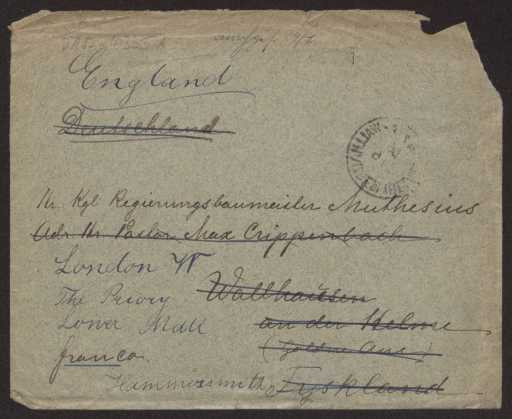 England
Deutschland
Hr. Kgl Regierungsbaumeister Muthesius
Adr Hr Pastor Max Trippenbach
London W
The Priory Wallhausen
Lower Mall an der Helme
franco. (Goldne Aue.)
Hammersmith Tyskland